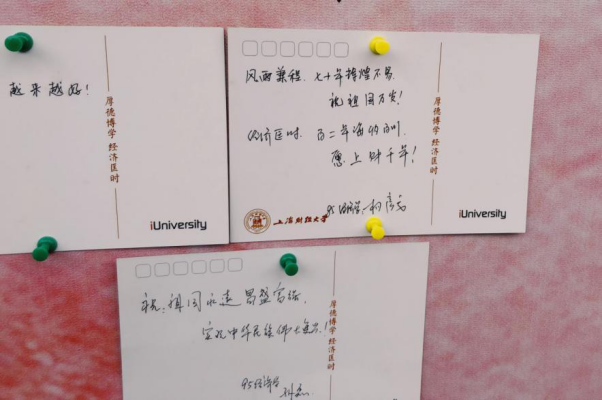 越来越好!
厚德博学 经济匡时
iUniversity
风雨兼程, 七十年辉煌不易
祝祖国万岁!
经济匡时, 百二年海纳百川
愿上财千年!
95
厚德博学 经济匡时
上海财经大学
iUniversity
祝: 祖国永远昌盛富强,
中华民族伟大复兴!
95经济学
厚德博学 经济匡时